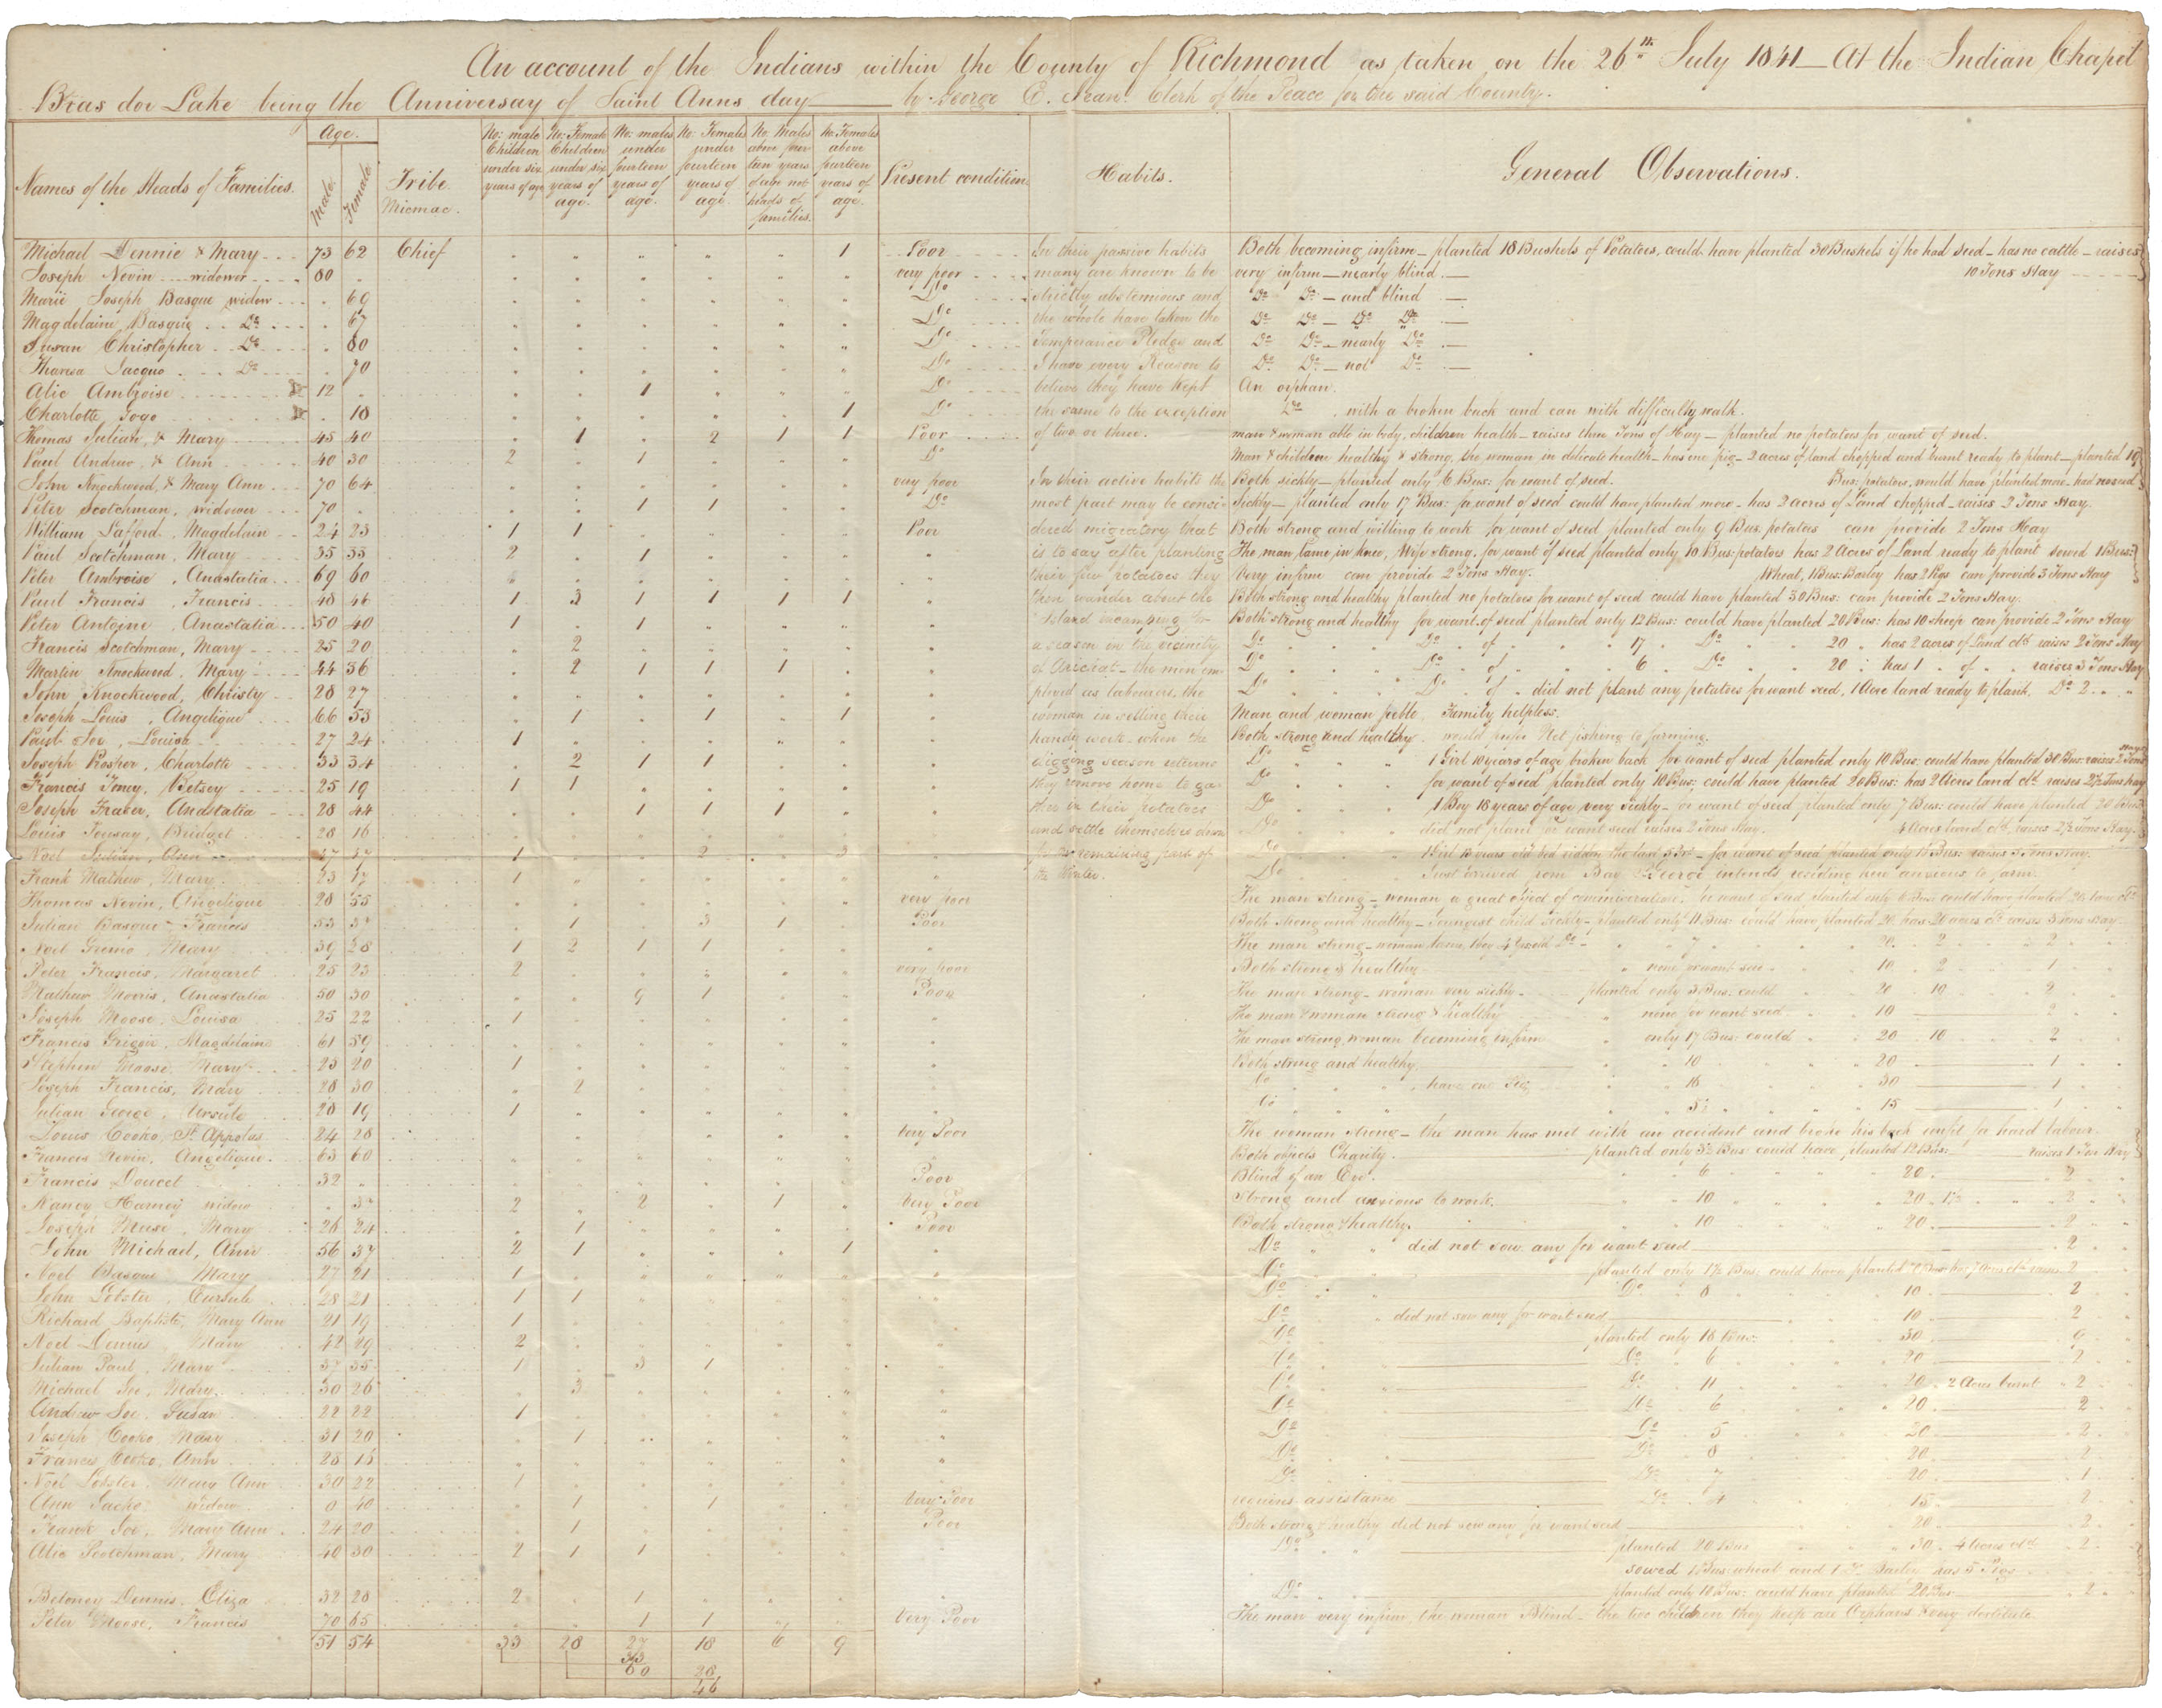 An account of the Indians within the County of Richmond as taken on the 26th July 1841 — At the Indian Chapel
Bras dor Lake being the Anniversay of Saint Anns day —— by George E. Clerk of the Peace for the said County.
Names of the Heads of Families.
Age.
Male.
Female
Tribe.
Micmac.
No: male Children under six years of age
No: Female Children under six years of age.
No: males under fourteen years of age.
No: Females under fourteen years of age.
No. Males above four teen years of age not heads of families.
No. Females above fourteen years of age.
Present condition
Habits.
General Observations.
Michael Dennie & Mary 73 62 Chief " " " " " 1 Poor Both becoming infirm – planted 18 Bushels of Potatoes, could have planted 30 Bushels if he had seed – has no cattle – raises
10 Tons Hay
Joseph Nevin widower 80 very poor very infirm – nearly blind. —
Marie Joseph Basque widow 69 Do Do Do – and blind —
Magdelaine Basque Do 67 Do Do Do – Do Do —
Susan Christopher Do 80 Do Do Do – nearly Do —
Theresa Jacquo Do 70 Do Do Do – not Do —
Alic Ambroise 12 1 Do An orphan.
Charlotte Gogo 18 1 Do Do, with a broken back and can with difficulty walk.
Thomas Julian, & Mary 45 40 1 2 1 1 Poor man & woman able in body, children health – raises three Tons of Hay – planted no potatoes for want of seed.
Paul Andrew, & Ann 40 30 2 1 Do Man & children healthy & strong, the woman in delicate health – has one pig – 2 acres of land chopped and burnt ready to plant – planted 19
Bus: potatoes, would have planted more had
John Knockwood, & Mary Ann 70 64 very poor Both sickly – planted only 6 Bus: for want of seed.
Peter Scotchman, widower 70 1 1 Do Sickly – planted only 17 Bus: for want of seed could have planted more – has 2 acres of Land chopped – raises 2 Tons Hay.
William Lafford, Magdelain 24 23 1 1 Poor Both strong and willing to work for want of seed planted only 9 Bus. potatoes can provide 2 Tons Hay
Paul Scotchman, Mary 35 33 2 1 " The man lame in knee, Wife strong, for want of seed planted only 10 Bus: potatoes has 2 Acres of Land ready to plant sowed 1 Bus:
Wheat, 1 Bus: Barley has 2 Pigs can provide 3 Tons Hay
Peter Ambroise, Anastatia 69 60 " Very infirm can provide 2 Tons Hay.
Paul Francis, Francis 48 46 1 3 1 1 1 1 " Both strong and healthy planted no potatoes for want of seed could have planted 30 Bus: can provide 2 Tons Hay.
Peter Antoine, Anastatia 50 40 1 1 " Both strong and healthy for want of seed planted only 12 Bus: could have planted 20 Bus: has 10 sheep can provide 2 Tons Hay
Francis Scotchman, Mary 25 20 2 " Do Do of 17 Do 20 has 2 acres of Land cld raises 2 Tons Hay
Martin Knockwood, Mary 44 36 2 1 1 1 " Do Do of 6 Do 20 has 1 of raises 3 Tons Hay
John Knockwood, Christy 28 27 " Do Do of did not plant any potatoes for want seed, 1 Acre land ready to plant, Do 2
Joseph Louis, Angelique 66 53 1 1 1 " Man and woman feeble. Family helpless.
Paul Joe, Louisa 27 24 1 " Both strong and healthy. would prefer Net fishing to farming.
Joseph Prosper, Charlotte 33 34 2 1 1 " Do 1 Girl 10 years of age broken back for want of seed planted only 10 Bus: could have planted 30 Bus: raises 2 Tons Hay
Francis Toney, Betsey 25 19 1 1 " Do for want of seed planted only 10 Bus: could have planted 20 Bus: has 2 Acres land cld raises 2½ Tons hay
Joseph Fraser, Anastatia 28 44 1 1 1 " Do 1 Boy 18 years of age very sickly – for want of seed planted only 7 Bus: could have planted 20 Bus:
4 Acres land cld raises 2½ Tons Hay.
Louis Bridget 28 16 " did not plant for want seed raises 2 Tons Hay.
Noel Julian, Ann 37 1 2 3 " Do 1 Girl years old bed ridden the last 5 – for want of seed planted only Bus: raises Tons Hay.
Frank Mathew, Mary 23 17 1 " Do Just arrived from Bay St George intends residing here anxious to farm.
Thomas Nevin, Angelique 28 55 very poor The man strong – woman a great object of commiseration, for want of seed planted only 6 Bus could have planted 20
Julian Basque – Frances 53 1 3 1 Poor Both strong and healthy – youngest child sickly – planted only 11 Bus: could have planted 20 has 20 acres cld raises 3 Tons Hay
Noel Mary 39 28 1 2 1 1 " The man strong – woman lame, boy 4 Do 7 20 2 2
Peter Francis, Margaret 25 23 2 very poor Both strong & healthy none for want seed 10 2 1
Mathew Morris, Anastatia 50 30 1 Poor The man strong – woman very sickly planted only 3 Bus: could 20 10 2
Joseph Moose, Louisa 25 22 1 " The man & woman strong & healthy none for want seed 10 2
Francis Magdelaine 61 59 " The man strong woman becoming infirm only 17 Bus: could 20 10 2
Stephen Moose, Mary 23 20 1 " Both strong and healthy 10 20 1
Joseph Francis, Mary 28 30 2 " Do have one Pig 16 30 1
Julian George, Ursule 28 19 1 " Do 5½ 15 1
Louis Cooko, St Appolas 24 28 Very Poor The woman strong – the man has met with an accident and broke his back unfit for hard labour.
Francis Nevin, Angelique 63 60 " Both objects Charity. planted only 3½ Bus: could have planted 12 Bus: raises 1 Ton Hay
Francis Doucet 32 Poor Blind of an Eye. 6 20 2
Nancy widow 2 2 1 Very Poor Strong and anxious to work. 10 20 1½ 2
Joseph Muse, Mary 26 24 1 Poor Both strong & healthy. 10 20 2
John Michael, Ann 56 37 2 1 1 " Do did not sow any for want seed 2
Noel Basque Mary 27 21 1 " Do planted only 1½ Bus: could have planted Bus: has 7 Acres cld raises 2
John Lobster, Cursule 28 21 1 1 " Do Do 8 10 2
Richard Baptiste, Mary Ann 21 19 1 Do did not sow any for want seed 10 2
Noel Dennis Mary 42 29 2 Do planted only 18 Bus: 30
Julian Paul, Mary 37 35 1 3 1 Do Do 6 20 2
Michael Joe, Mary 30 26 3 Do Do 11 20 2 Acres burnt 2
Andrew Joe, Susan 22 22 1 Do Do 6 20 2
Joseph Cooko, Mary 31 20 1 Do Do 5 20 2
Francis Cooko, Ann 28 18 Do Do 8 20 2
Noel Lobster, Mary Ann 30 22 1 Do Do 7 20 1
Ann Jacko widow 0 40 1 1 Very Poor requires assistance Do 4 15 2
Frank Joe, Mary Ann 24 20 1 Poor Both strong & healthy did not sow any for want seed 20 2
Alic Scotchman, Mary 40 30 2 1 1 " Do planted 20 Bus 30 4 Acres cld 2
sowed 1 Bus: wheat and 1 Barley has 5 Pigs
Beloney Dennis, Eliza 32 28 2 1 Do planted only 10 Bus: could have planted 20 Bus: 2
Peter Moose, Francis 70 65 1 1 Very Poor The man very infirm the woman Blind – the two children they keep are Orphans & very destitute
51 54 33 28 27 18 6 9
33 28
60 46
In their passive habits
many are known to be
strictly abstemious and
the whole have taken the
Temperance Pledge and
I have every Reason to
believe they have kept
the same to the exception
of two or three.
In their active habits the
most part may be consi-
dered migratory that
is to say after planting
their few potatoes they
then wander about the
Island encamping for
a season in the vicinity
of Arichat – the men em-
ployed as labourers the
woman in selling their
handy work – when the
digging season returns
they remove home to ga-
ther in their potatoes
and settle themselves down
for the remaining part of
the Winter.